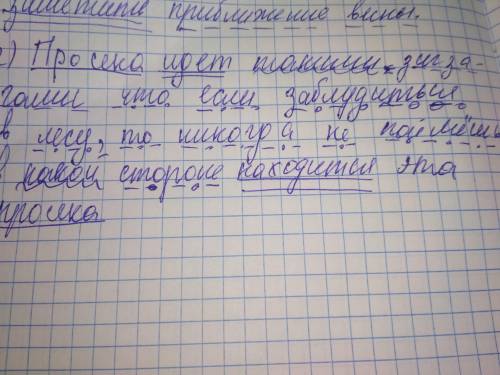 заметить приближение весны.
) Просека идет такими зигза-
гами что если заблудиться
в лесу, то никогда не поймёшь
в какой стороне находится эта
просека